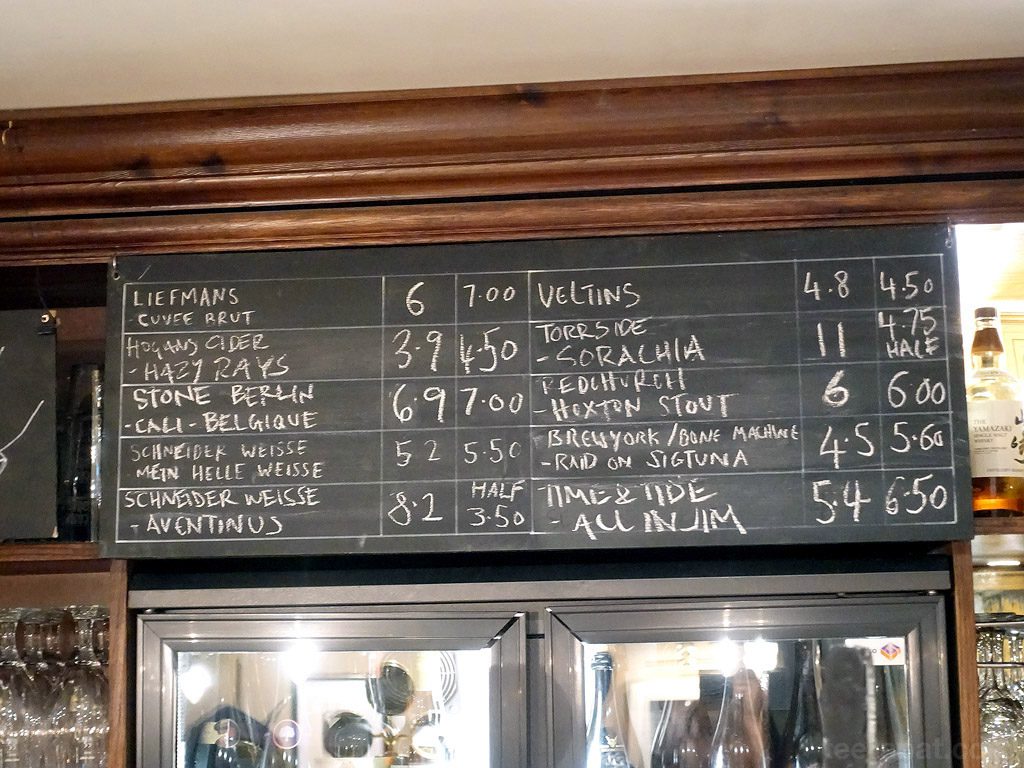 LIEFMANS 6 7.00
- CUVEE BRUT
HOGANS CIDER 3.9 4.50
- HAZY RAYS
STONE BERLIN 6.9 7.00
- CALI - BELGIQUE
SCHNEIDER WEISSE 5.2 5.50
MEIN HELLE WEISSE
SCHNEIDER WEISSE 8.2 HALF
- AVENTINUS 3.50
VELTINS 4.8 4.50
TORRSIDE 11 4.75
- SORACHIA HALF
REDCHURCH 6 6.00
- HOXTON STOUT
BREWYORK / BONE MACHINE 4.5 5.60
- RAID ON SIGTUNA
TIME & TIDE 5.4 6.50
- ALL IN JIM
THE
YAMAZAKI
SINGLE MALT
WHISKY